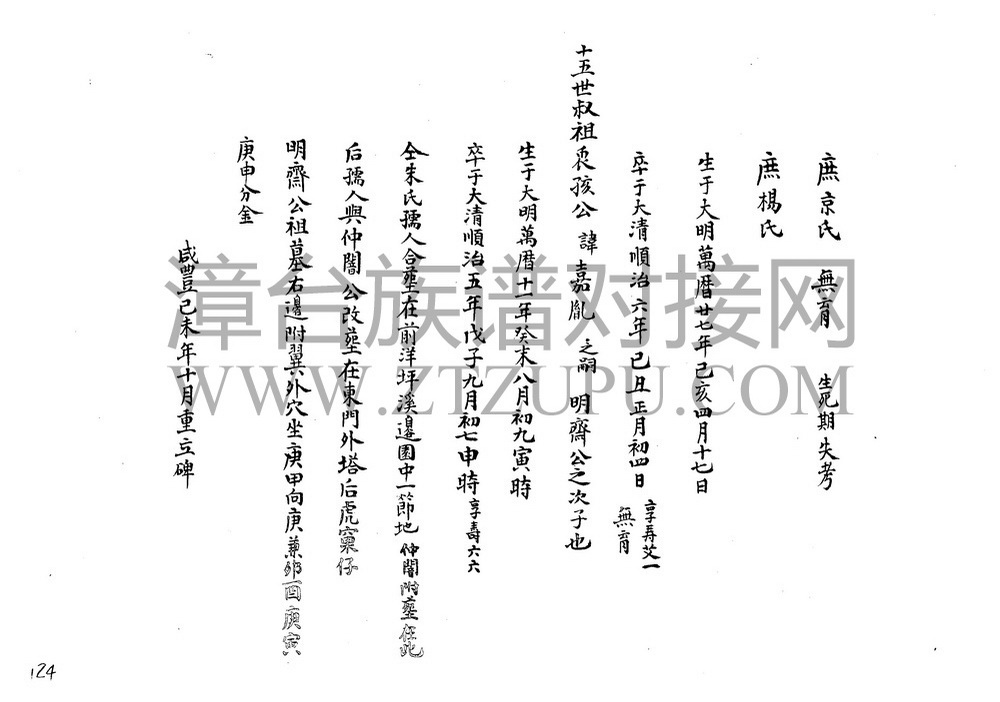 庶京氏 無育 生死期失考
庶楊氏
生于大明萬曆廿七年己亥四月十七日
卒于大清順治六年己丑正月初四日 享寿艾一 無育
十五世叔祖 孩公 諱嘉胤 之嗣 明齋公之次子也
生于大明萬曆十一年癸未八月初九寅時
卒于大清順治五年戊子九月初七申時 享壽六六
仝朱氏孺人合塟在前洋坪溪邊園中一節地 仲闇附塟在此
后孺人與仲闇公改塟在東門外塔后虎窠仔
明齋公祖墓右邊附翼外穴坐庚甲向庚兼卯酉庚寅
庚申分金
咸豐己未年十月重立碑
124
漳台族谱对接网
WWW.ZTZUPU.COM